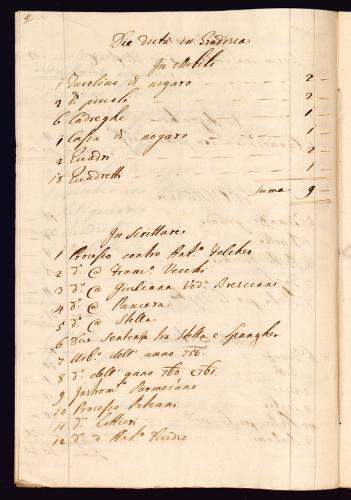 2.
Die dicta in Gradisca
In Mobili
1 Tavolino di nogaro — 2 —
2 d.i piccoli — 2 —
6 Cadreghe — 1
1 Cassa di nogaro — 1
2 Quadri — 2
18 Quadretti — 1
Suma 9 —
In Scritture
1 Processo contro Ant.o
2 d.o @ Franc.o Vecchi
3 d.o @ Giuliana Ved.a Bresciani
4 d.o @ Pancera
5 d.o @ Stella
6 Due Sentenze fra Stella e Spangher
7 Urb.o dell' anno 756.
8 d.o dell' anno 760 e 761.
9 Instrom.to Parmesano
10 Processo
11 d.o
12 d.o d' Ant.o